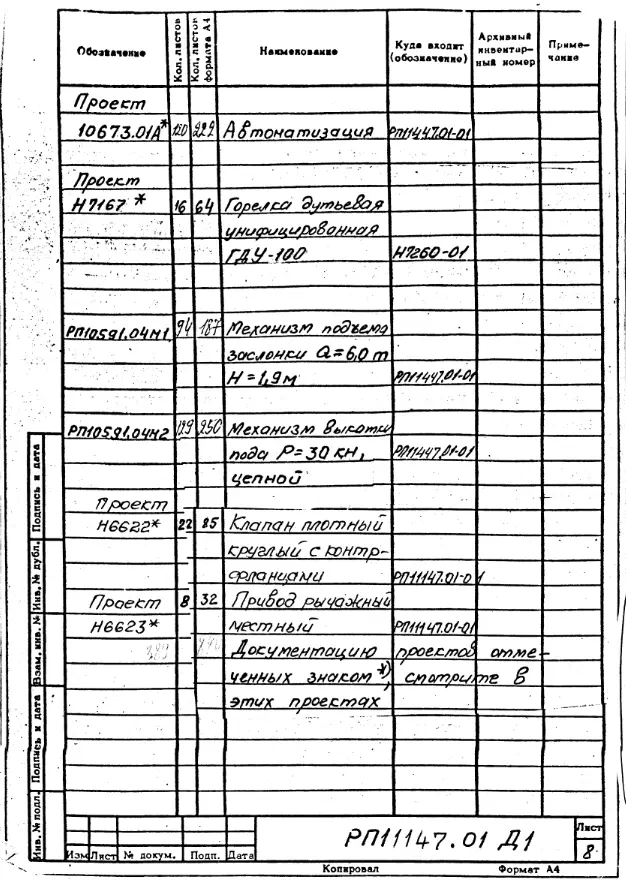 Обозначение Кол. листов Кол. листов формата А4 Наименование Куда входит (обозначение) Архивный инвентарный номер Приме-чание
Проект
10673.01А* 120 222 Автонатизация РП11447.01-01
Проект
Н7167* 16 64 Горелка дутьевая
унифицированная
ГДУ-100 Н7260-01
РП10591.04М1 94 187 Механизм подъема
заслонки Q=6,0 т
Н=1,9м РП11447.01-01
РП10591.04М2 129 250 Механизм выкатки
пода Р=30 кн, РП11447.01-01
цепной
Проект
Н6622* 22 85 Клапан плотный
круглый с контр-
фланцами РП11147.01-01
Проект 8 32 Привод рычажный
Н6623* местный РП11147.01-01
Документацию проектов отме-
ченных знаком *) смотрите в
этих проектах
Инв. № подл. Подпись и дата Взам. инв. № Инв. № дубл. Подпись и дата
РП11147.01 Д1
Лист
8
Изм Лист № докум. Подп. Дата
Копировал Формат А4